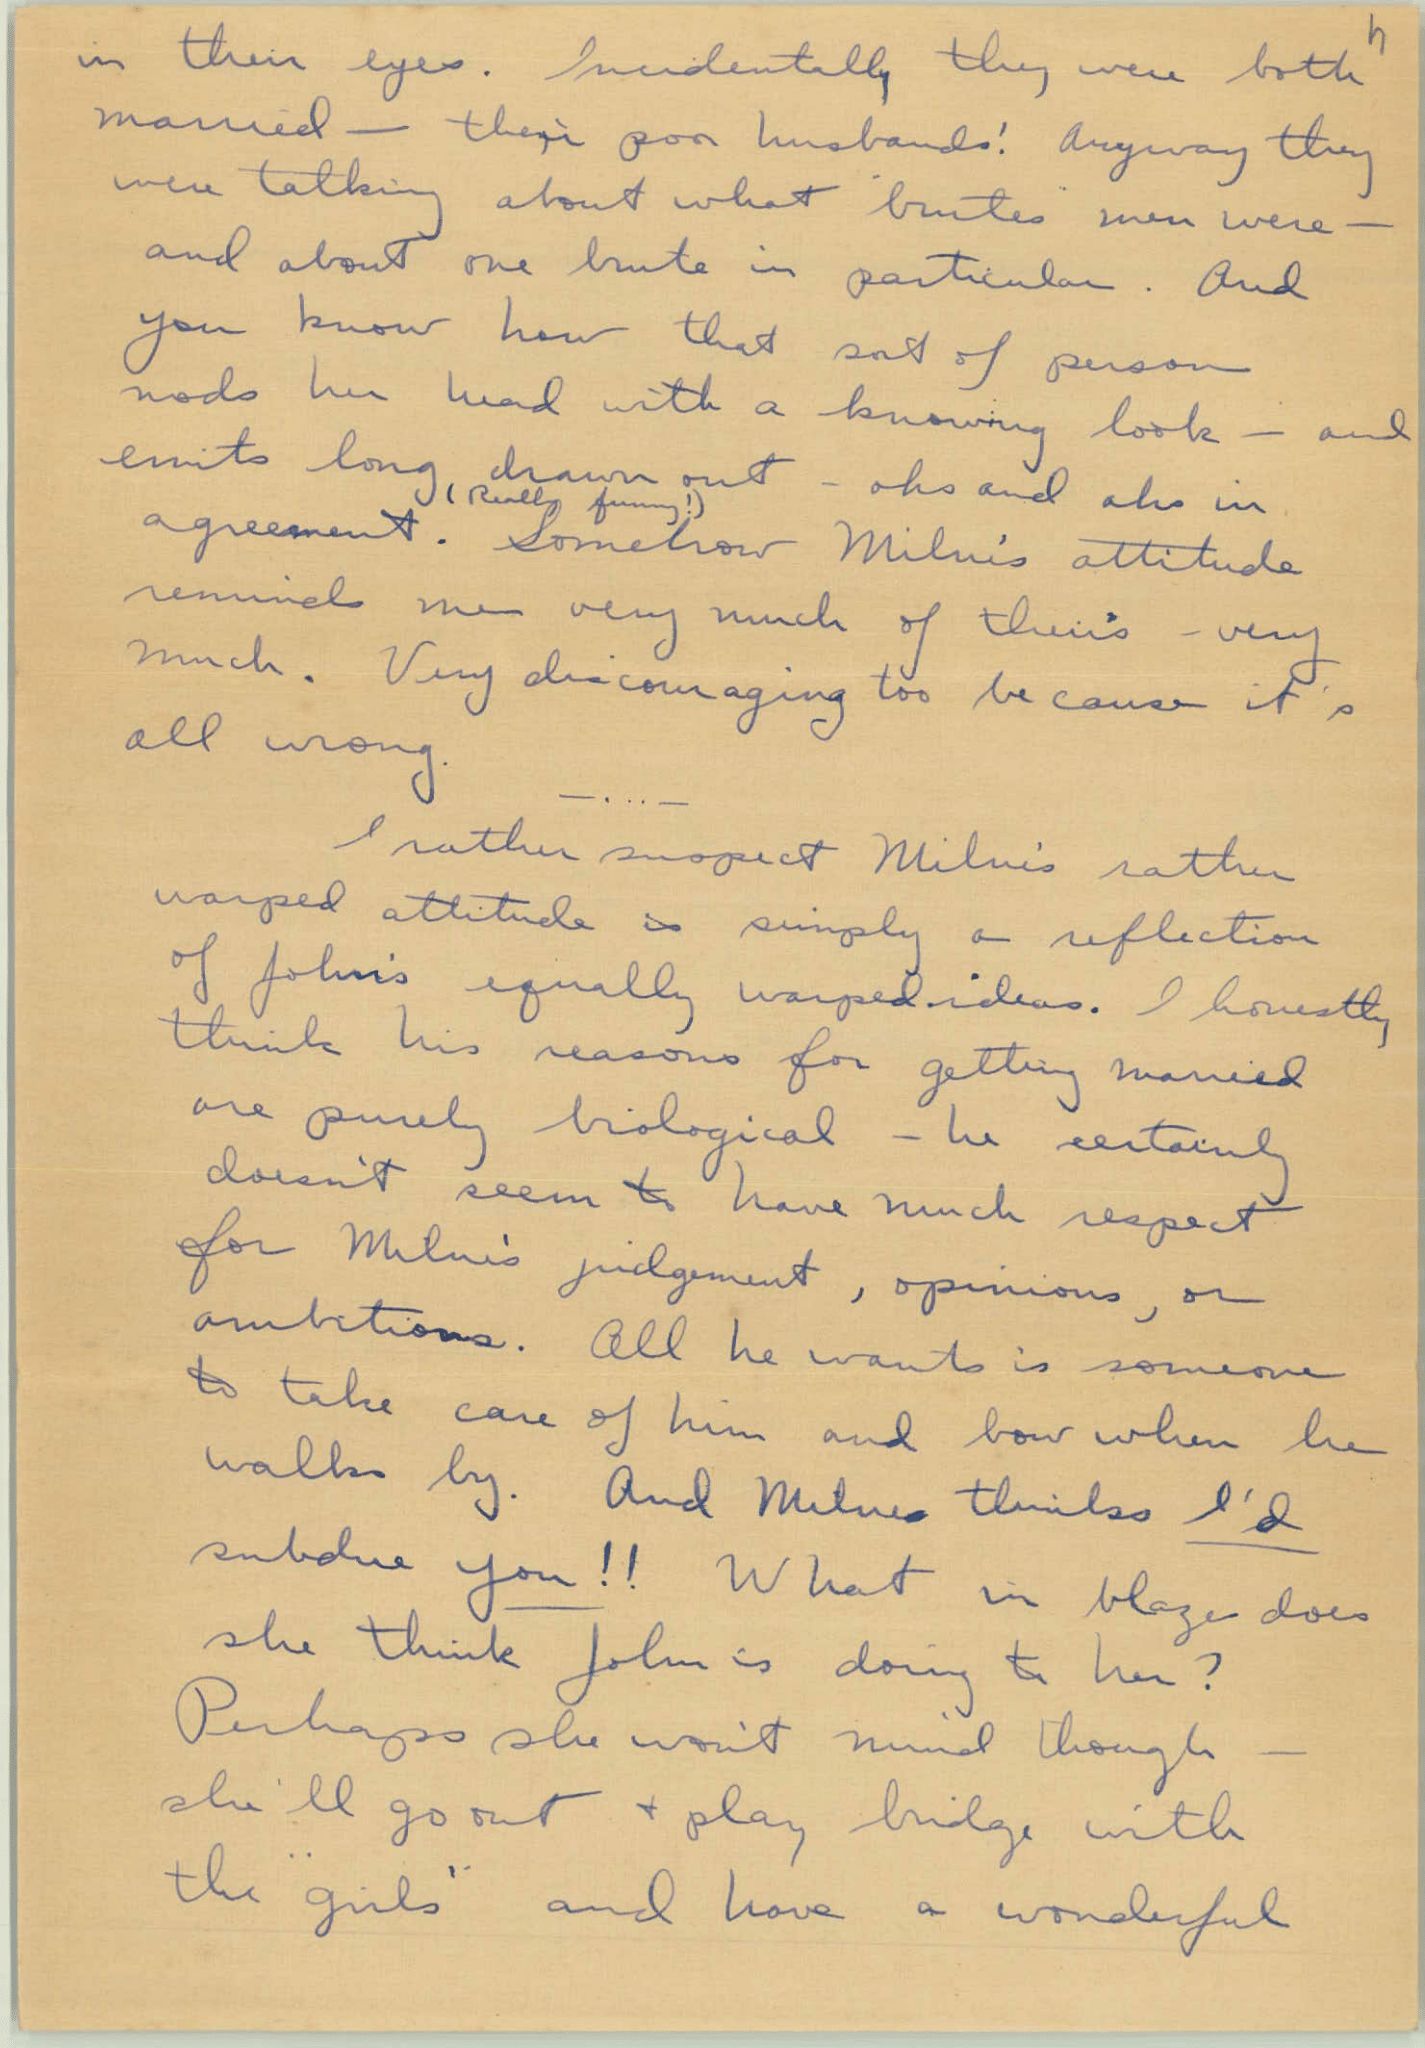 in their eyes. Incidentally they were both
married — their poor husbands! Anyway they
were talking about what "brutes" men were —
and about one brute in particular. And
you know how that sort of person
nods her head with a knowing look — and
emits long, drawn out – ohs and ahs in
(Really funny!)
agreement. Somehow Milne's attitude
reminds me very much of their's – very
much. Very discouraging too because it's
all wrong.
—...—
I rather suspect Milne's rather
warped attitude is simply a reflection
of John's equally warped ideas. I honestly
think his reasons for getting married
are purely biological – he certainly
doesn't seem to have much respect
for Milne's judgement, opinions, or
ambitions. All he wants is someone
to take care of him and bow when he
walks by. And Milnes thinks I'd
subdue you!! What in blazes does
she think John is doing to her?
Perhaps she won't mind though —
she'll go out + play bridge with
the "girls" and have a wonderful